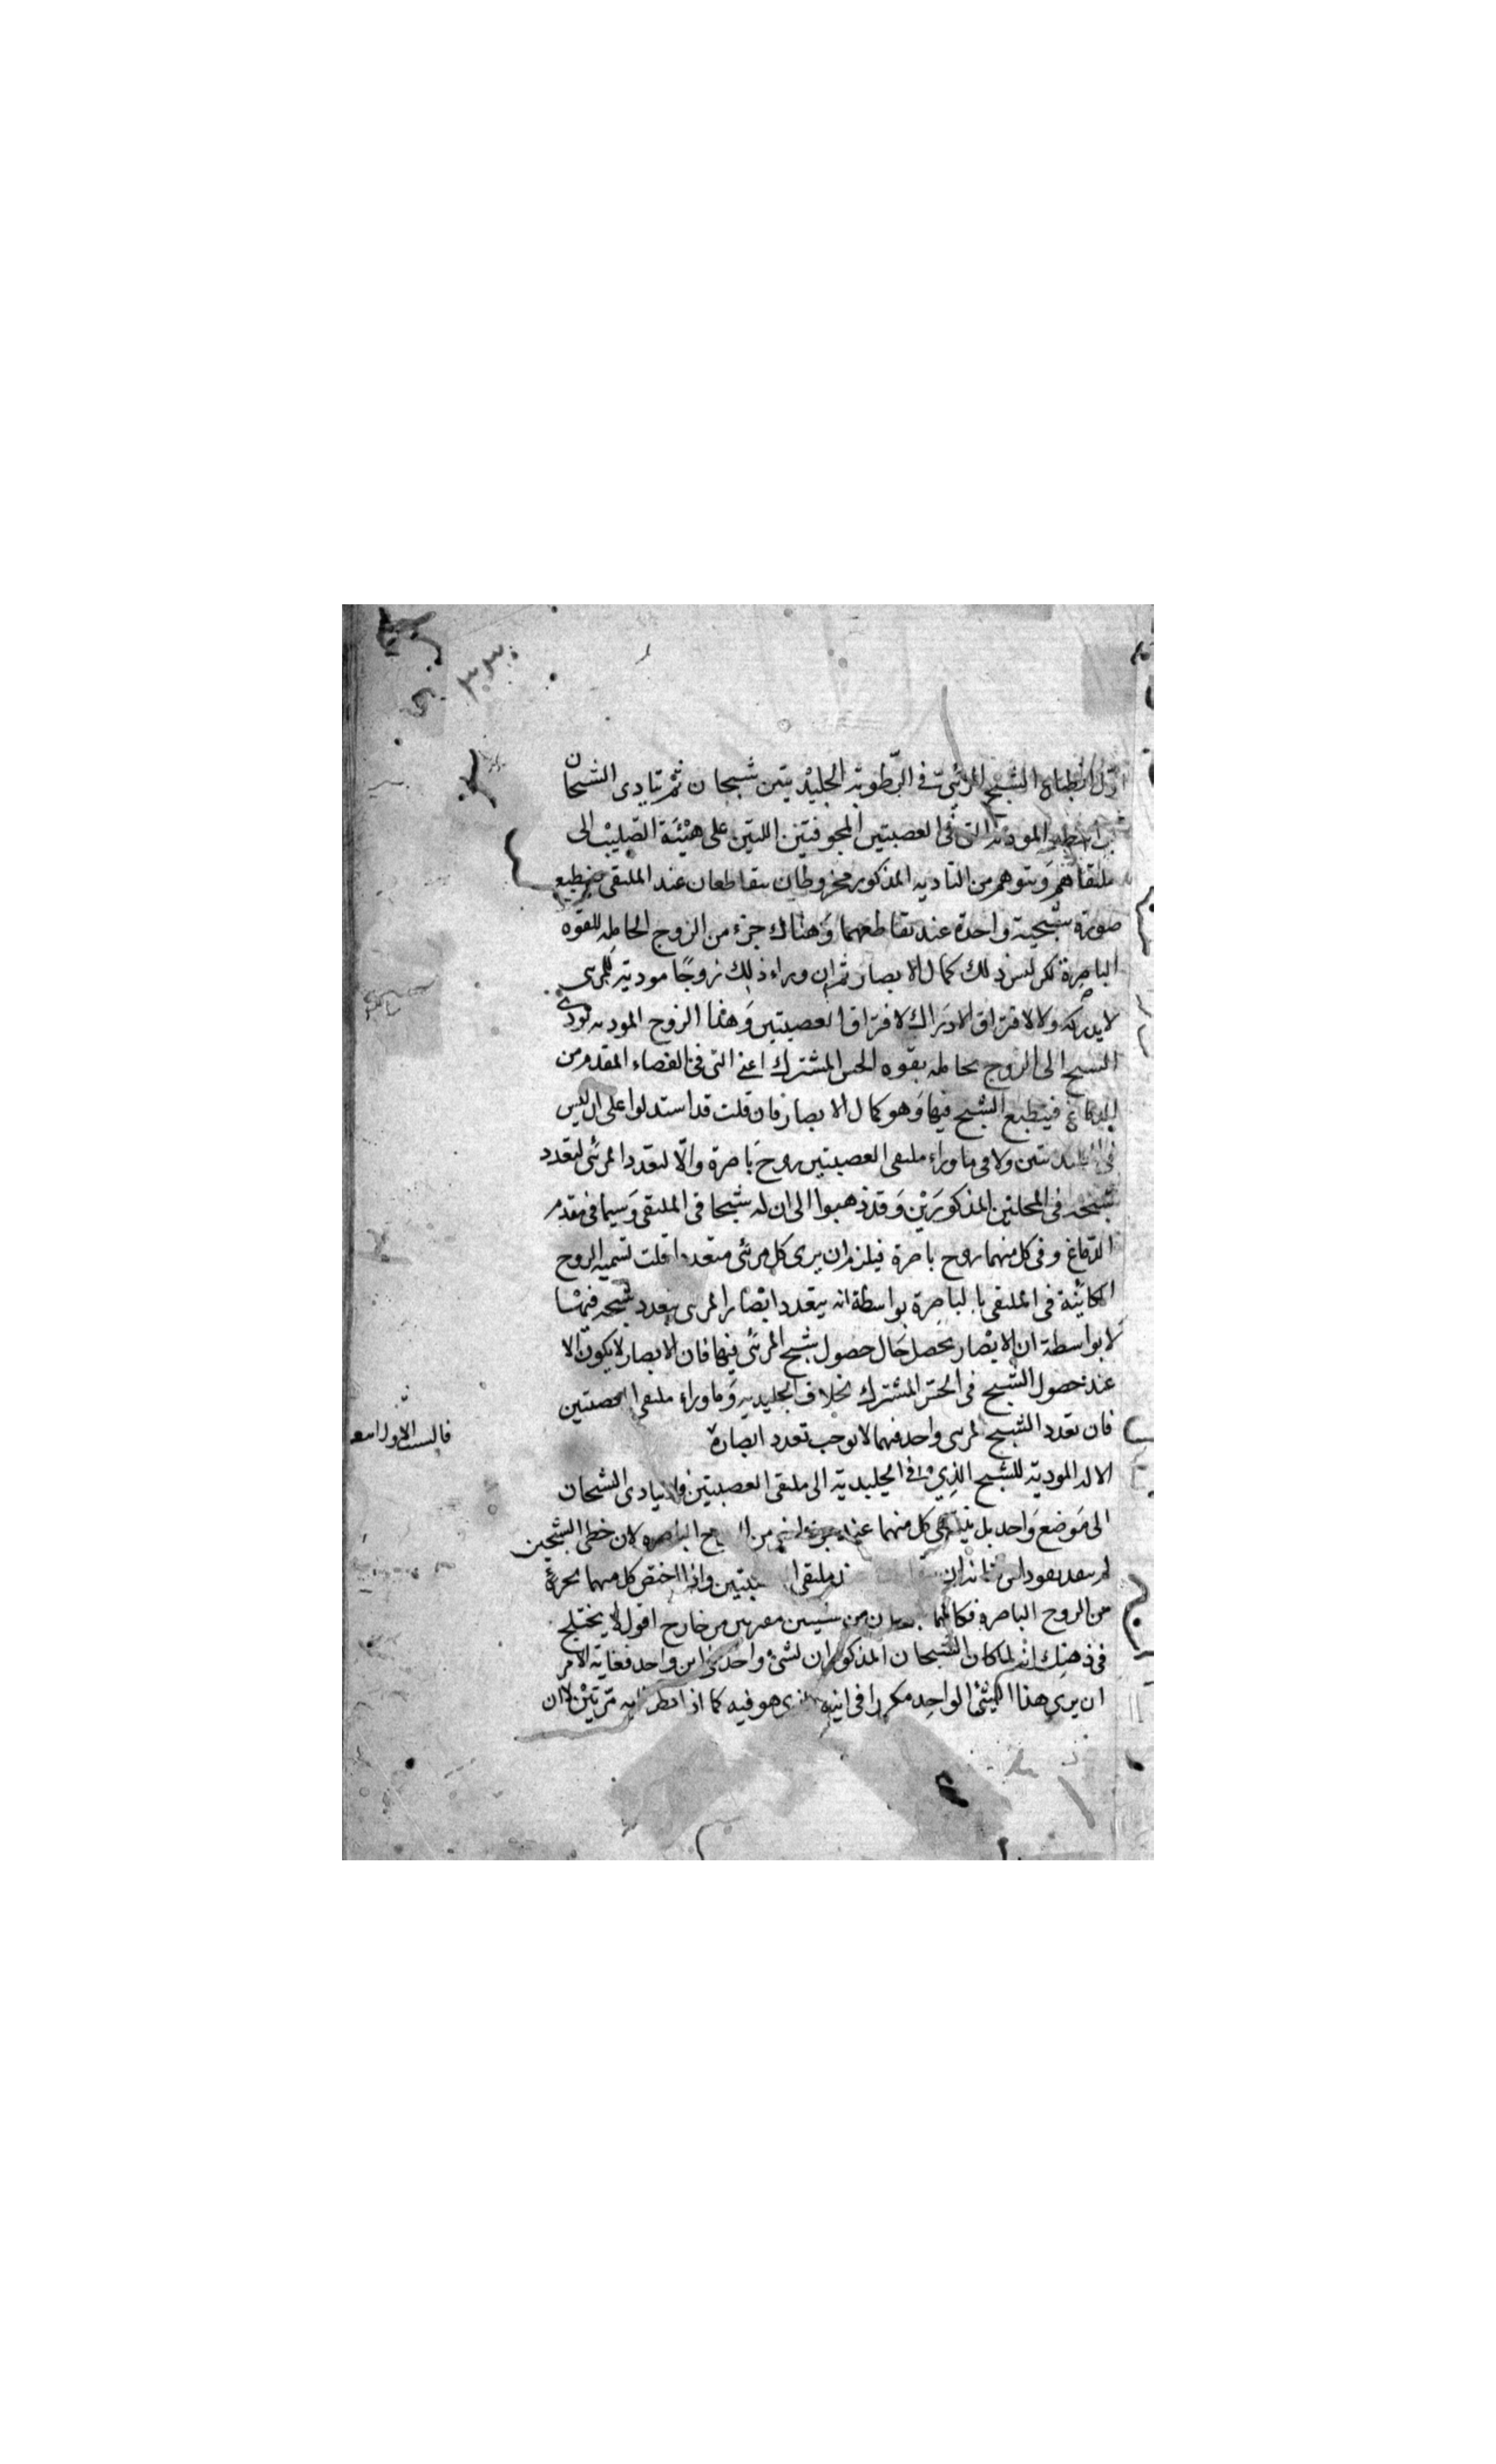 اول انطباع الشبح المرئي في الرطوبة الجليديتين شبحان ثم يتادى الشبحان
المودية التي في العصبتين المجوفتين اللتين على هيئة الصليب الى
ملتقاهم ويتوهم من التادية المذكور مخروطان يتقاطعان عند الملتقى فينطبع
صورة شبحية واحدة عند تقاطعهما وهناك جزء من الروح الحاملة للقوه
الباصرة لكن ليس ذلك كمال الابصار ثم ان وراء ذلك روحًا مودية للمرئي
لا يدركه والا لافتراق الادراك لافتراق العصبتين وهذا الروح المودية تودى
الشبح الى الروح بحامله بقوه الحس المشترك اعني التي في الفضاء المقدم من
الدماغ فينطبع الشبح فيها وهو كمال الابصار فان قلت قد استدلوا على ان ليس
ولا في ما وراء ملتقى العصبتين روح باصرة والا لتعدد المرئي لتعدد
شبحه في المحلين المذكورين وقد ذهبوا الى ان له شبحا في الملتقى وسيما في مقدم
الدماغ وفي كل منهما روح باصرة فيلزم ان يرى كل مرئي متعددا قلت تسمية الروح
الكائنة في الملتقى بالباصرة بواسطة انه يتعدد ابصار المرئي بتعدد شبحه فيها
لا بواسطة ان الابصار يحصل حال حصول شبح المرئي فيها فان الابصار لا يكون الا
عند حصول الشبح في الحس المشترك بخلاف الجليدية وما وراء ملتقى العصبتين
فان تعدد الشبح لمرئي واحد فيهما لا يوجب تعدد ابصاره
الالة المودية للشبح الذي في الجليدية الى ملتقى العصبتين فلا يتادى الشبحان
الى موضع واحد بل ينتهي كل منهما عند جزء من الباصره لان خطي الشبحين
لم ينفذ نفوذا ملتقى واذا اختص كل منهما بجزء
من الروح الباصره فكانهما من شيئين مفترقين من خارج اقول لا يختلج
في ذهنك انه لما كان الشبحان المذكوران لشئ واحد في اين واحد فغاية الامر
ان يرى هذا الشئ الواحد مكررا في اينه الذي هو فيه كما اذا نظر اليه مرتين لا ان